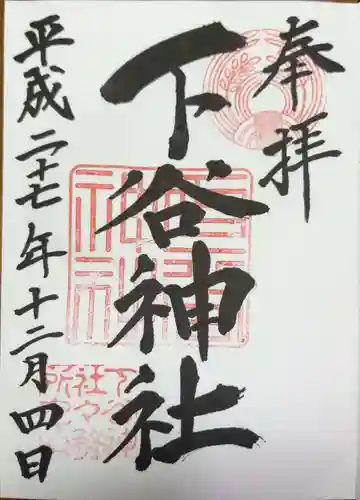 奉拝
下谷神社
平成二十七年十二月四日